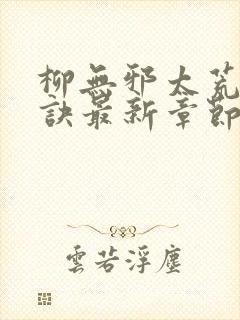 柳無邪太荒
訣最新章節
雲若浮塵